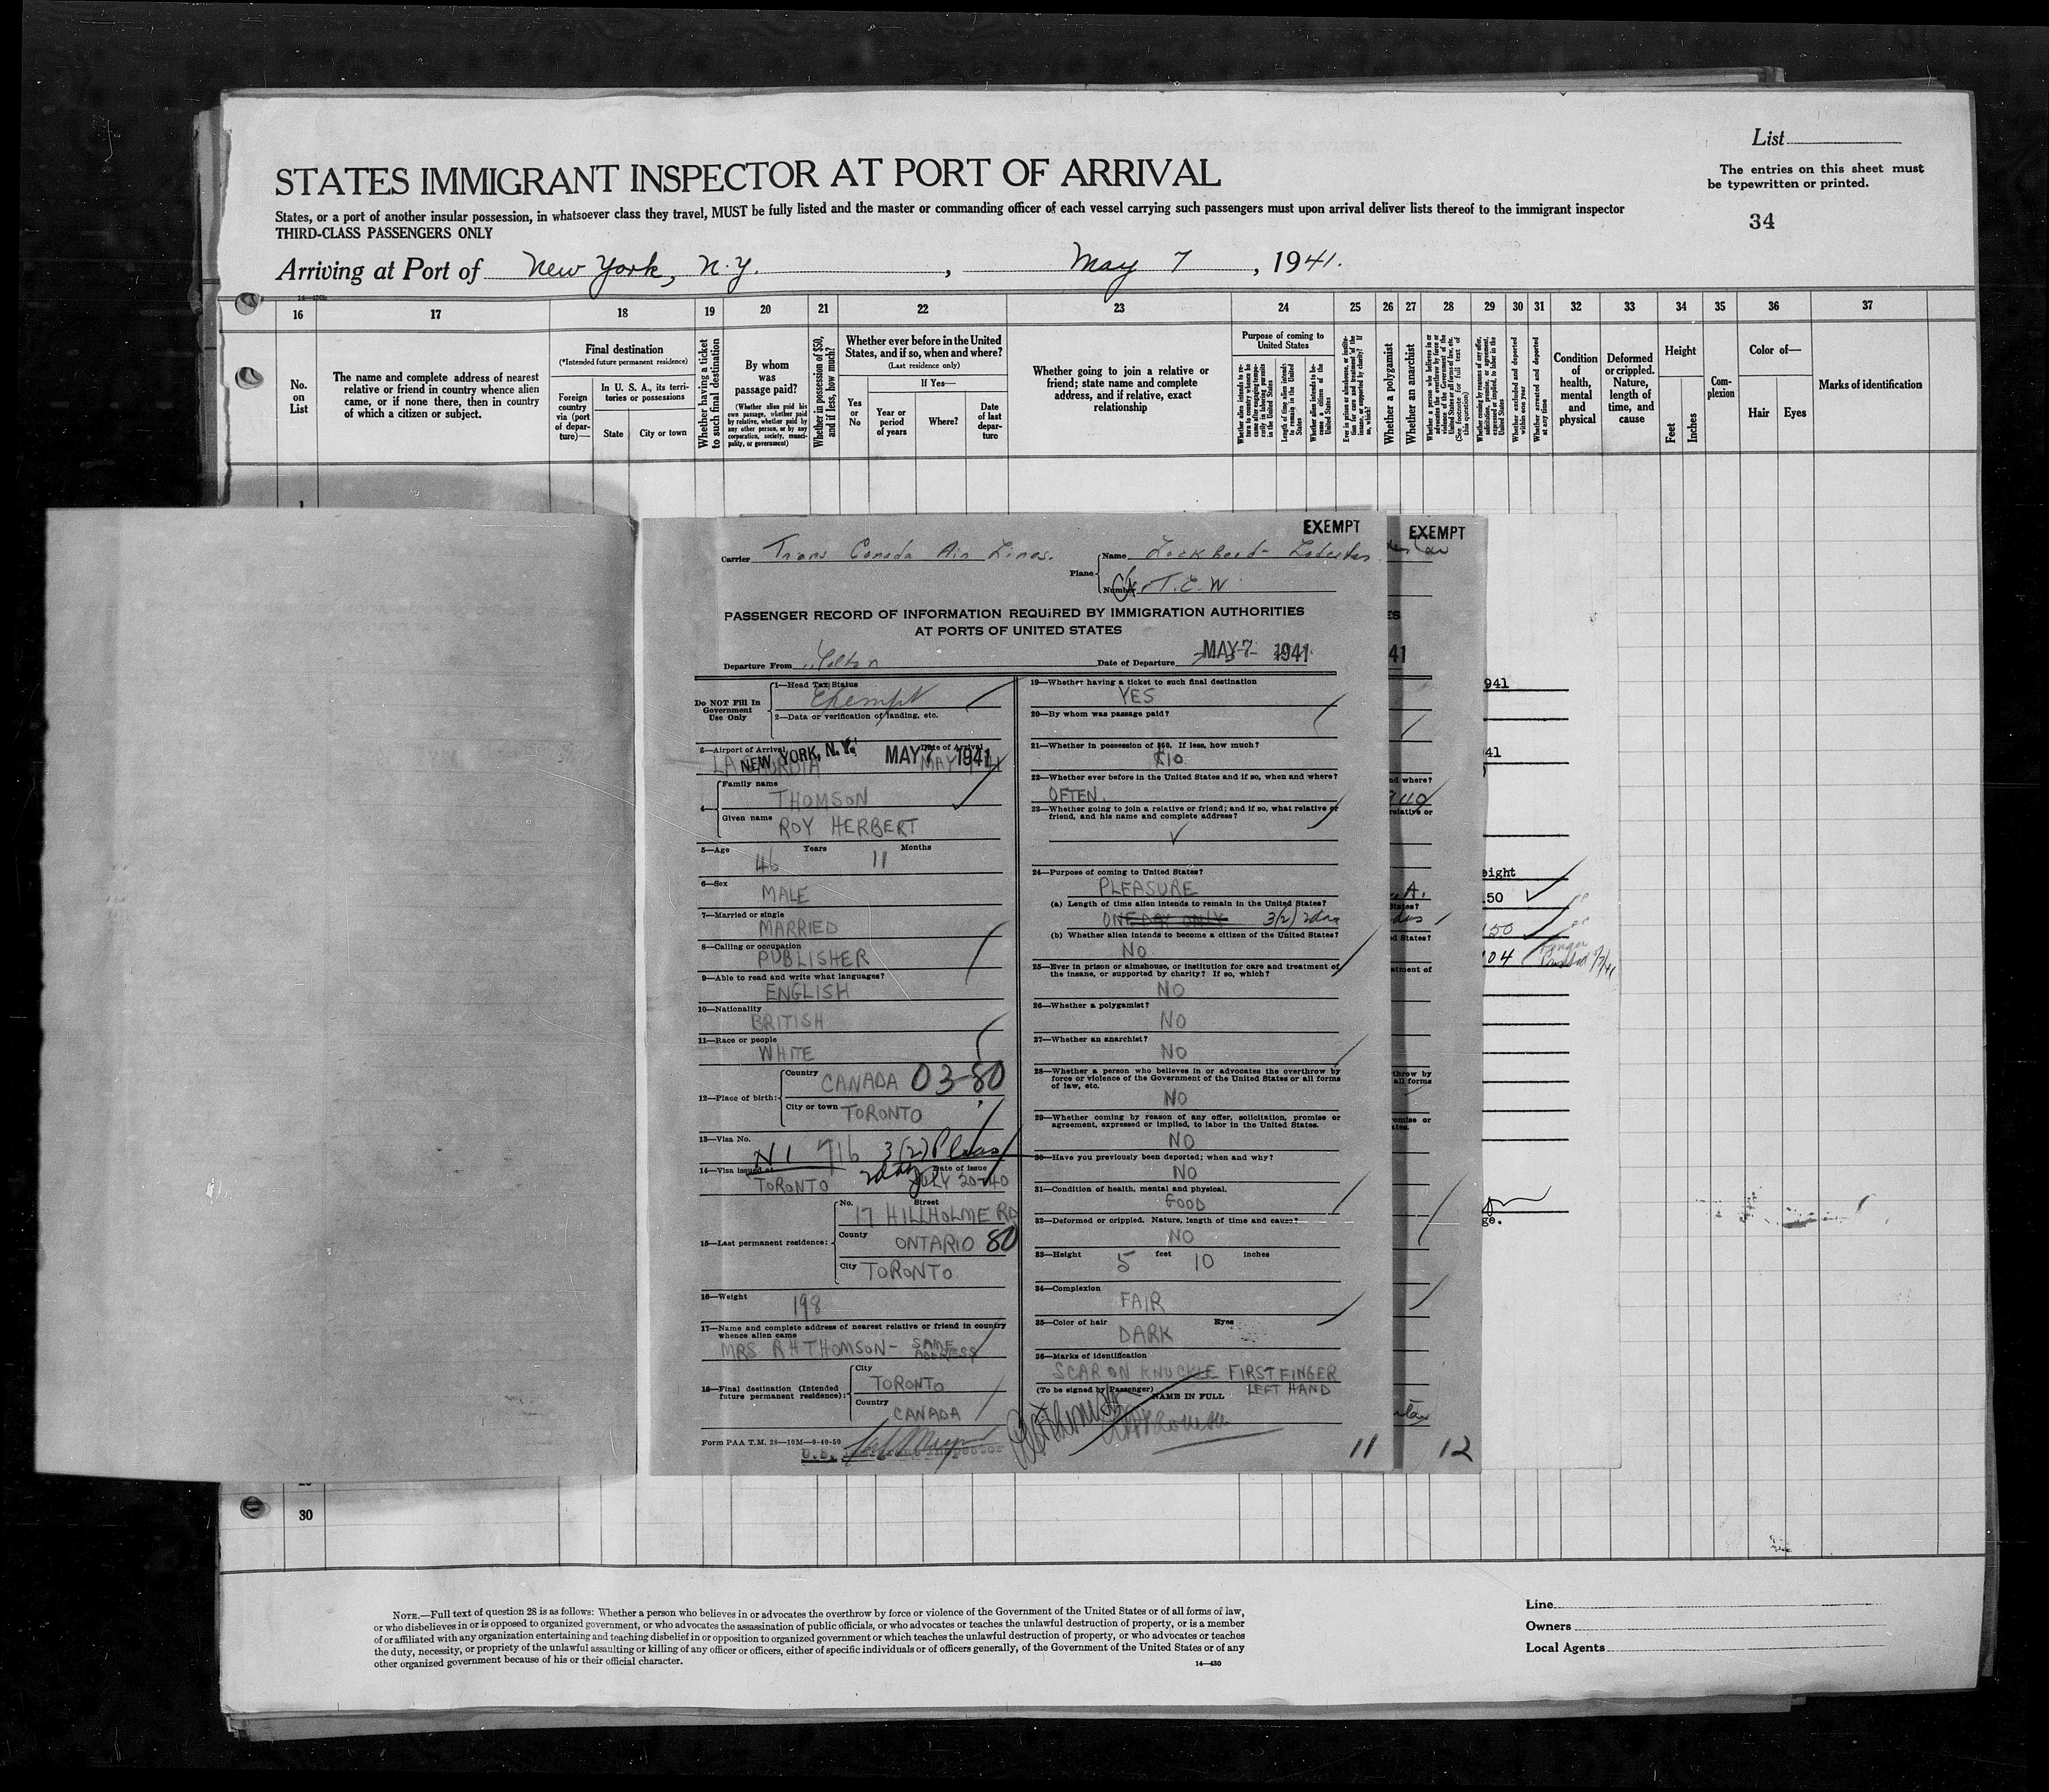 List
The entries on this sheet must
be typewritten or printed.
34
STATES IMMIGRANT INSPECTOR AT PORT OF ARRIVAL
States, or a port of another insular possession, in whatsoever class they travel, MUST be fully listed and the master or commanding officer of each vessel carrying such passengers must upon arrival deliver lists thereof to the immigrant inspector
THIRD-CLASS PASSENGERS ONLY
Arriving at Port of New York, N.Y. , May 7 , 1941.
16 17 18 19 20 21 22 23 24 25 26 27 28 29 30 31 32 33 34 35 36 37
No. on List
The name and complete address of nearest
relative or friend in country whence alien
came, or if none there, then in country
of which a citizen or subject.
Final destination
(*Intended future permanent residence)
Foreign
country
via (port
of depar-
ture)—
In U. S. A., its terri-
tories or possessions
State
City or town
Whether having a ticket
to such final destination
By whom
was
passage paid?
(Whether alien paid his
own passage, whether paid
by relative, whether paid by
any other person, or by any
corporation, society, munici-
pality, or government)
Whether in possession of $50,
and if less, how much?
Whether ever before in the United
States, and if so, when and where?
(Last residence only)
Yes
or
No
If Yes—
Year or
period
of years
Where?
Date
of last
depar-
ture
Whether going to join a relative or
friend; state name and complete
address, and if relative, exact
relationship
Purpose of coming to
United States
Whether a polygamist
Whether an anarchist
Whether excluded and deported
within one year
Whether arrested and deported
at any time
Condition
of
health,
mental
and
physical
Deformed
or crippled.
Nature,
length of
time, and
cause
Height
Feet
Inches
Com-
plexion
Color of—
Hair
Eyes
Marks of identification
EXEMPT
EXEMPT
Carrier Trans Canada Air Lines.
Plane Name Lockheed-
Number T.E.W
PASSENGER RECORD OF INFORMATION REQUIRED BY IMMIGRATION AUTHORITIES
AT PORTS OF UNITED STATES
Departure From Malton
Date of Departure MAY 7 1941
Do NOT Fill In
Government
Use Only
1—Head Tax Status
Exempt
2—Data or verification of landing, etc.
3—Airport of Arrival
Date of Arrival
NEW YORK, N.Y. MAY 7 1941
4— Family name
THOMSON
Given name
ROY HERBERT
5—Age 46 Years 11 Months
6—Sex
MALE
7—Married or single
MARRIED
8—Calling or occupation
PUBLISHER
9—Able to read and write what languages?
ENGLISH
10—Nationality
BRITISH
11—Race or people
WHITE
12—Place of birth: Country CANADA 03-80
City or town TORONTO
13—Visa No.
716 3(2)
14—Visa issued at TORONTO
Date of issue JULY 20-40
15—Last permanent residence: No. Street
17 HILLHOLME RD
County ONTARIO 80
City TORONTO
16—Weight
198
17—Name and complete address of nearest relative or friend in country
whence alien came
MRS R H THOMSON - SAME ADDRESS
18—Final destination (Intended
future permanent residence):
City TORONTO
Country CANADA
Form PAA T.M. 28—10M—9-40-50
19—Whether having a ticket to such final destination
YES
20—By whom was passage paid?
21—Whether in possession of $50. If less, how much?
$10
22—Whether ever before in the United States and if so, when and where?
OFTEN.
23—Whether going to join a relative or friend; and if so, what relative or
friend, and his name and complete address?
24—Purpose of coming to United States?
PLEASURE
(a) Length of time alien intends to remain in the United States?
ONE DAY ONLY 3(2)
(b) Whether alien intends to become a citizen of the United States?
NO
25—Ever in prison or almshouse, or institution for care and treatment of
the insane, or supported by charity? If so, which?
NO
26—Whether a polygamist?
NO
27—Whether an anarchist?
NO
28—Whether a person who believes in or advocates the overthrow by
force or violence of the Government of the United States or all forms
of law, etc.
NO
29—Whether coming by reason of any offer, solicitation, promise or
agreement, expressed or implied, to labor in the United States.
NO
30—Have you previously been deported; when and why?
NO
31—Condition of health, mental and physical.
GOOD
32—Deformed or crippled. Nature, length of time and cause?
NO
33—Height 5 feet 10 inches
34—Complexion
FAIR
35—Color of hair Eyes
DARK
36—Marks of identification
SCAR ON KNUCKLE FIRST FINGER
LEFT HAND
(To be signed by Passenger) NAME IN FULL
11
12
30
NOTE.—Full text of question 28 is as follows: Whether a person who believes in or advocates the overthrow by force or violence of the Government of the United States or of all forms of law,
or who disbelieves in or is opposed to organized government, or who advocates the assassination of public officials, or who advocates or teaches the unlawful destruction of property, or is a member
of or affiliated with any organization entertaining and teaching disbelief in or opposition to organized government or which teaches the unlawful destruction of property, or who advocates or teaches
the duty, necessity, or propriety of the unlawful assaulting or killing of any officer or officers, either of specific individuals or of officers generally, of the Government of the United States or of any
other organized government because of his or their official character.
14—430
Line
Owners
Local Agents